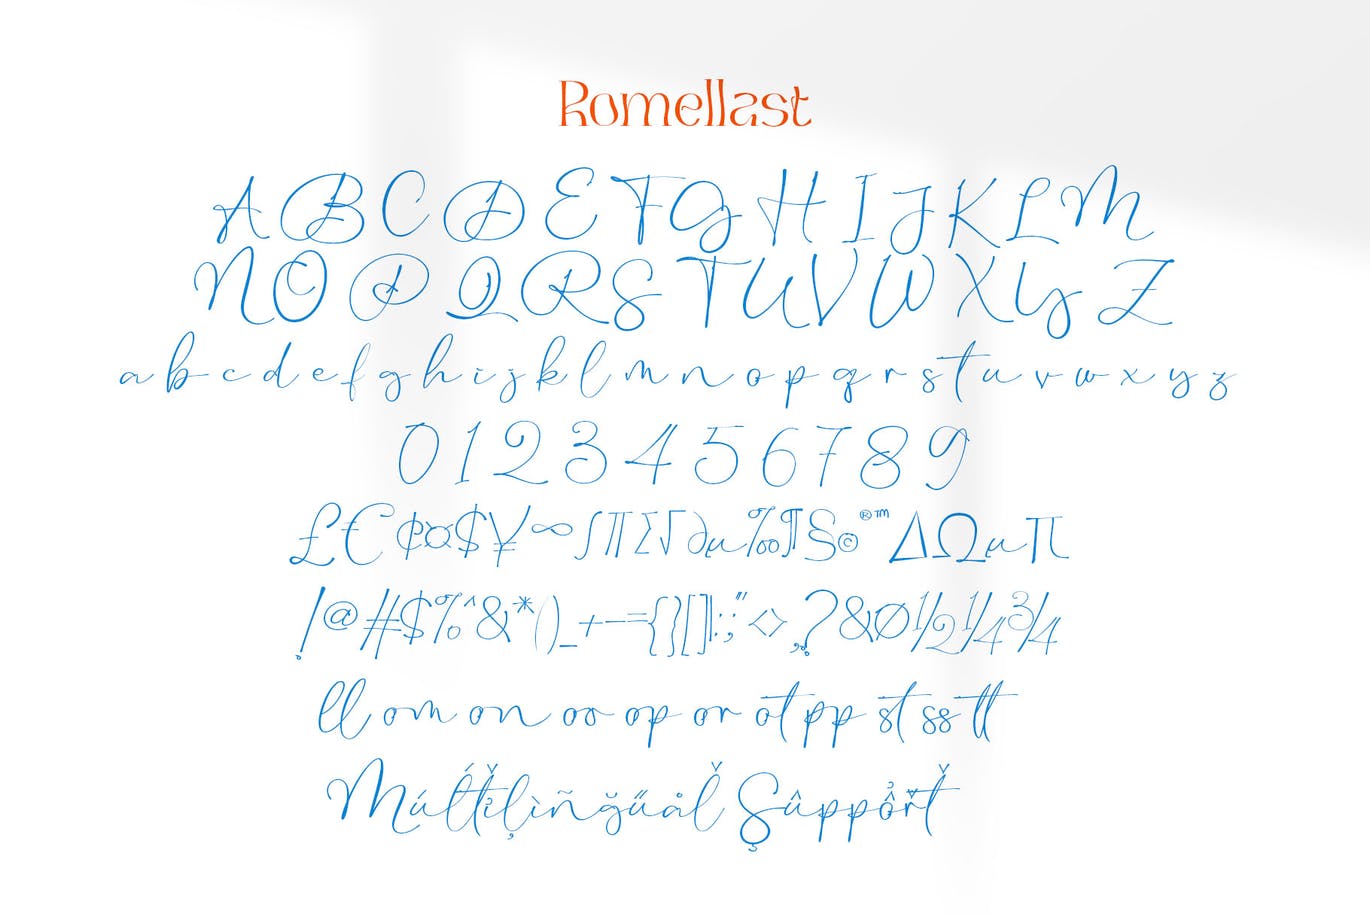 Romellast
A B C D E F G H I J K L M
N O P Q R S T U V W X Y Z
a b c d e f g h i j k l m n o p q r s t u v w x y z
0 1 2 3 4 5 6 7 8 9
£ € ¢ ¤ $ ¥ ∞ ∫ ∏ ∑ √ ∂ µ ‰ ¶ § © ® ™ ∆ Ω µ π
! @ # $ % ^ & * ( ) _ + - = { } [ ] | : ; " < > , . ? & Ø ½ ¼ ¾
ll om on oo op or ot pp st ss tt